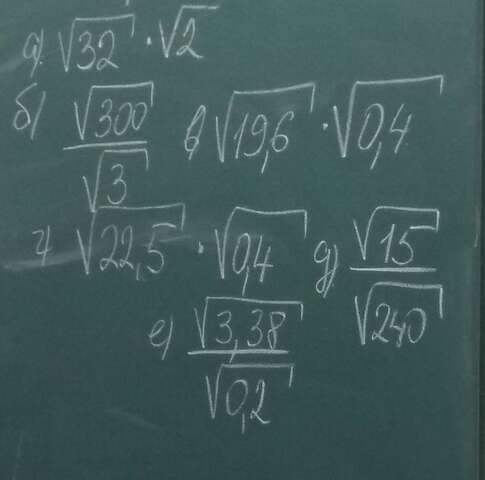 а) √32 · √2
б) √300 / √3 в) √19,6 · √0,4
г) √22,5 · √0,4 д) √15 / √240
е) √3,38 / √0,2